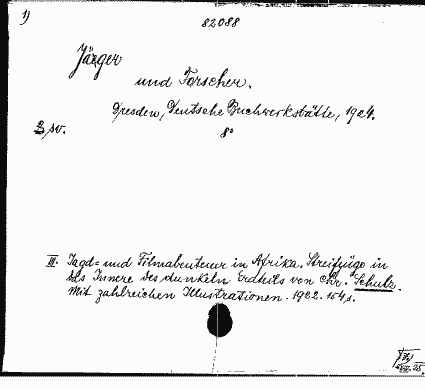 1)
82088
Jäger
und Forscher.
Dresden, Deutsche Buchwerkstätte, 1924.
8°
III. Jagd= und Filmabenteuer in Afrika. Streifzüge in
das Innere des dunkeln Erdteils von Chr. Schulz.
Mit zahlreichen Illustrationen. 1922. 154 s.